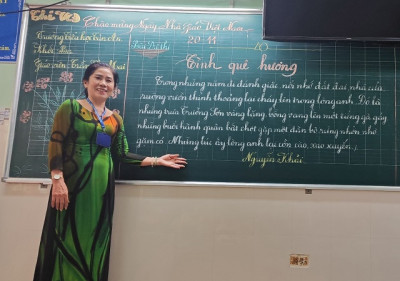 Thứ
Chào mừng Ngày Nhà giáo Việt Nam
20-11
Trường tiểu học
Giáo viên: Trần
Bài dự thi
10
Tình quê hương
Trong những năm đi đánh giặc, nỗi nhớ đất đai, nhà cửa,
ruộng vườn thỉnh thoảng lại cháy lên trong lòng anh. Đó là
những trưa Trường Sơn vắng lặng, bỗng vang lên một tiếng gà gáy,
những buổi hành quân bất chợt gặp một đàn bò rừng nhởn nhơ
gặm cỏ. Những lúc ấy lòng anh lại cồn cào, xao xuyến.
Nguyễn Khải